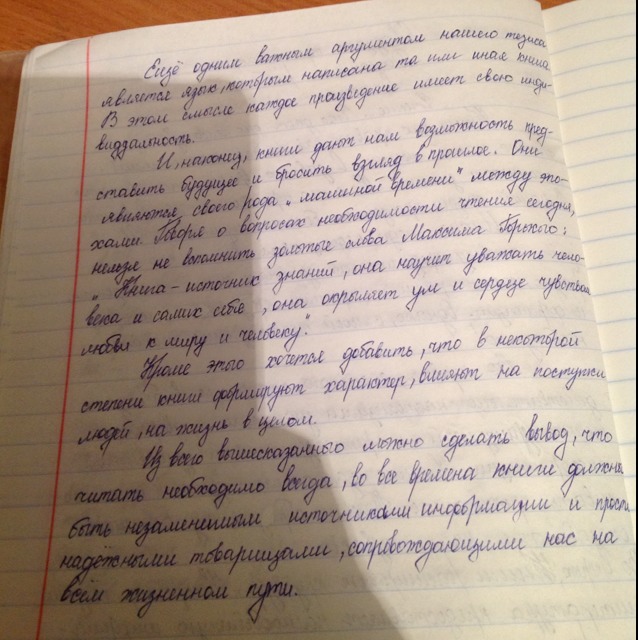 Ещё одним важным аргументом нашего тезиса
является язык, которым написана та или иная книга.
В этом смысле каждое произведение имеет свою инди-
видуальность.
И, наконец, книги дают нам возможность пред-
ставить будущее и бросить взгляд в прошлое. Они
являются своего рода „машиной времени" между эпо-
хами. Говоря о вопросах необходимости чтения сегодня,
нельзя не вспомнить золотые слова Максима Горького:
„Книга – источник знаний, она научит уважать чело-
века и самих себе, она окрыляет ум и сердце чувством
любви к миру и человеку."
Кроме этого хочется добавить, что в некоторой
степени книги формируют характер, влияют на поступки
людей, на жизнь в целом.
Из всего вышесказанного можно сделать вывод, что
читать необходимо всегда, во все времена книги должны
быть незаменимым источниками информации и просто
надёжными товарищами, сопровождающими нас на
всём жизненном пути.